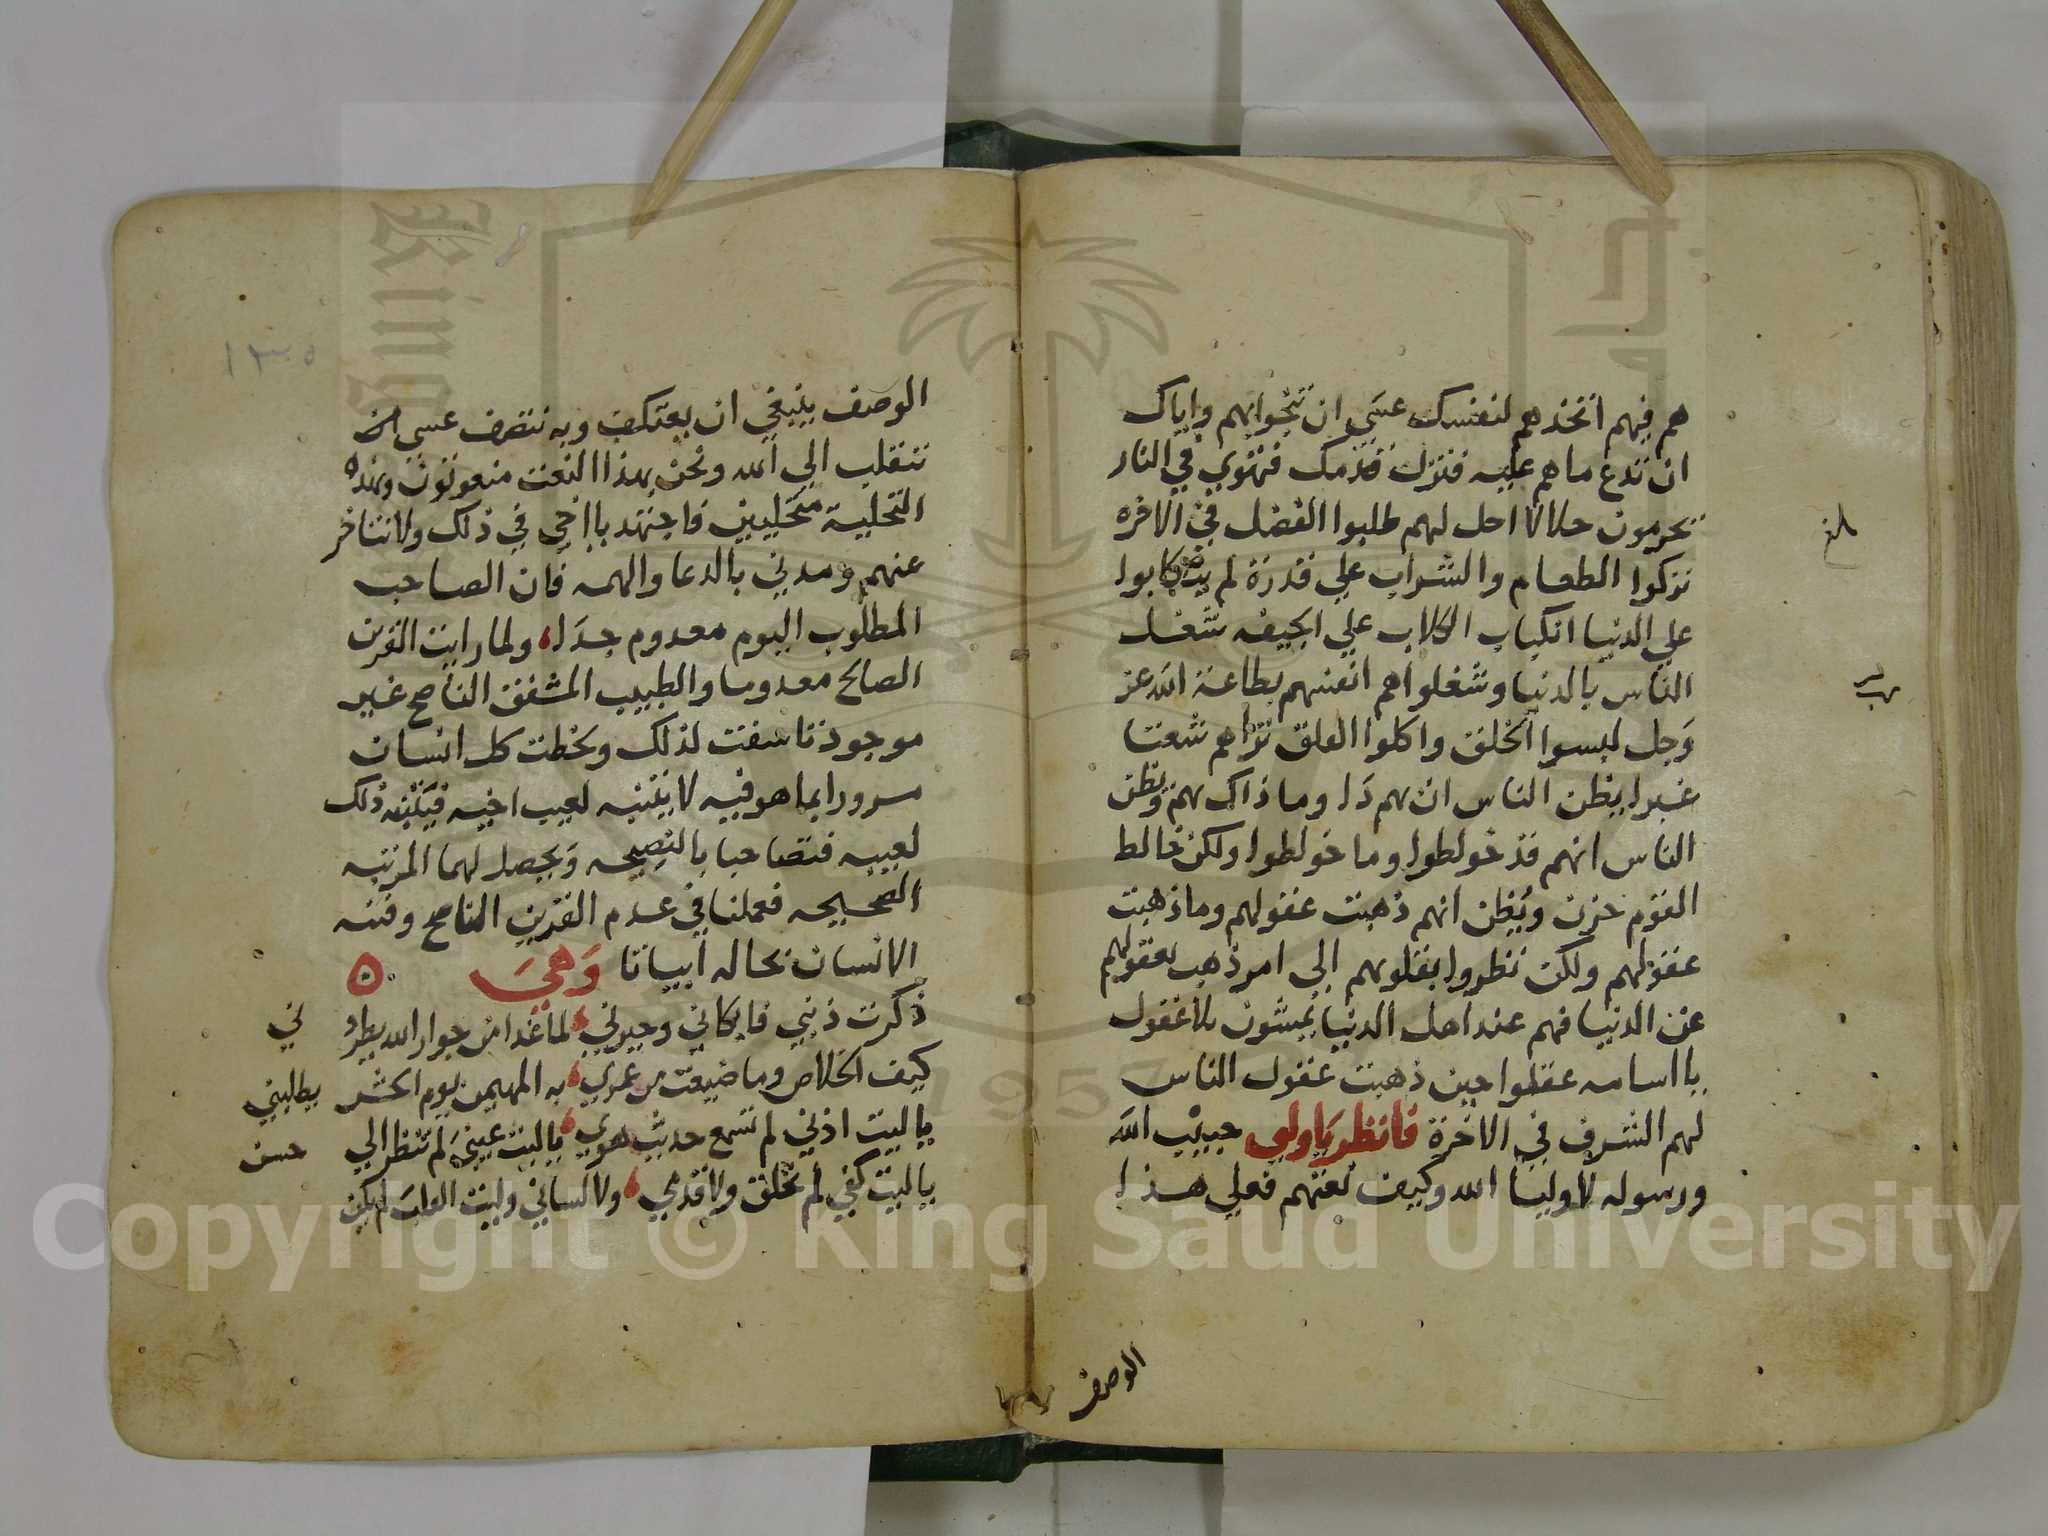 هم فيهم اتخذهم لنفسك عسى ان تنجوا بهم واياك
ان تدع ما هم عليه فتزل قدمك فتهوي في النار
تحرمون حلالا احل لهم طلبوا الفضل في الاخره
تركوا الطعام والشراب علي قدرة لم يتكابوا
علي الدنيا انكباب الكلاب علي الجيفه شغل
الناس بالدنيا وشغلوا هم انفسهم بطاعة الله عز
وجل لبسوا الخلق واكلوا الفلق تراهم شعثا
غبرا يظن الناس ان بهم دا وما ذاك بهم ويظن
الناس انهم قد خولطوا وما خولطوا ولكن خالط
القوم حزن ويظن انهم ذهبت عقولهم وما ذهبت
عقولهم ولكن نظروا بقلوبهم الى امر ذهب بعقولهم
عن الدنيا فهم عند اهل الدنيا يمشون بلا عقول
يا اسامه عقلوا حين ذهبت عقول الناس
لهم الشرف في الاخرة فانظر يا ولي حبيب الله
ورسوله لاوليا الله وكيف نعتهم فعلي هذا
الوصف
١٣٥
الوصف ينبغي ان يعتكف وبه نتصف عسى ان
ننقلب الي الله ونحن بهذا النعت منعوتون وبهذه
التحلية متحليين فاجتهد يا اخي في ذلك ولا تتاخر
عنهم ومدني بالدعا والهمه فان الصاحب
المطلوب اليوم معدوم جدا ولما رايت القرين
الصالح معدوما والطبيب المشفق الناصح غير
موجود تاسفت لذلك ونحطت كل انسان
مسرورا بما هو فيه لا ينبه لعيب اخيه فينبه ذلك
لعيبه فتصاحبا بالنصيحه ويحصل لهما المرتبه
الصحيحه فعملنا في عدم القرين الناصح وفتنه
الانسان بحاله ابياتا وهي
ذكرت ذنبي فابكاني وحيرني لما غدا من جوار الله يطردني
كيف الخلاص وما ضيعت من عمري به المهيمن يوم الحشر يطالبني
يا ليت اذني لم تسمع حديث هوي يا ليت عيني لم تنظر الي حسن
يا ليت كفي لم تخلق ولا قدمي ولا لساني وليت القلب لم يكن
Copyright © King Saud University
1957